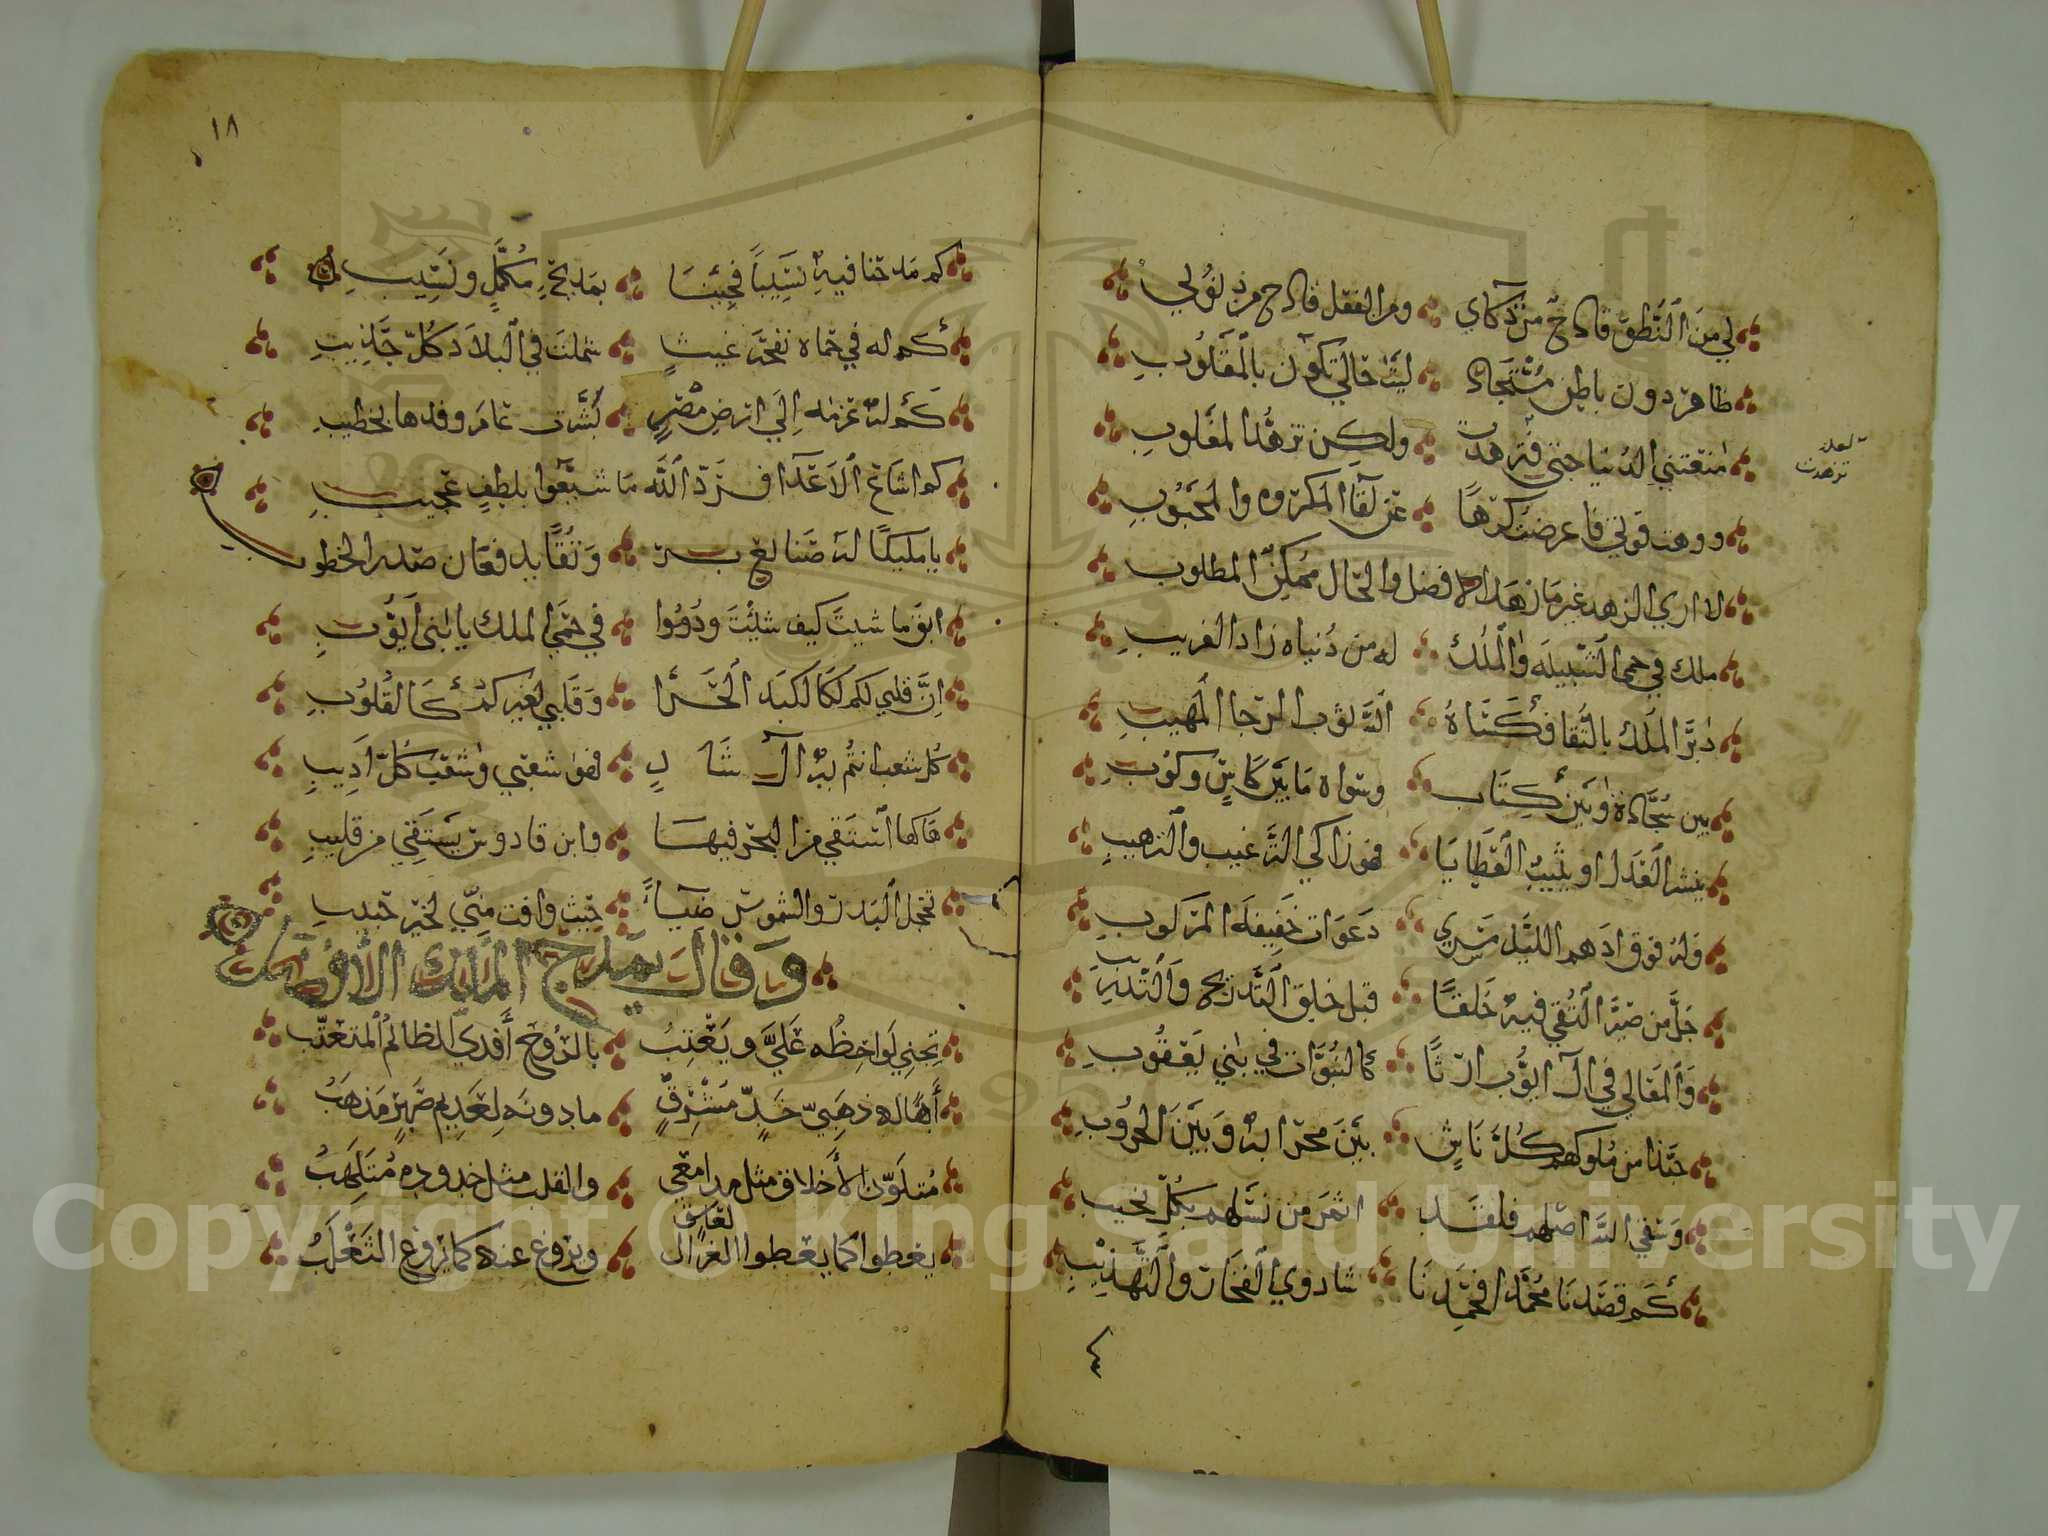 لي من النطق قادح من ذكاي ومن الفعل قادح من ذنوبي
ظاهر دون باطن مستجاد ليت حالي تكون بالمقلوب
منعتني الدنيا جنى فتزهدت ولكن تزهد المغلوب
لعله تزهدت
ووهت قوتي فاعرضت كرها عن لقا المكروه والمحبوب
لا اري الزهد غير ما زهد الافضل والحال ممكن المطلوب
ملك في حمى الشبيبه والملك له من دنياه زاد الغريب
دبر الملك بالتقا فكساه الله ثوب الرجا المهيب
بين سجادة وبين كتاب وسواه ما بين كاس وكوب
ينشر العدل او يثيب العطايا فهو زاكي الترغيب والترهيب
وله فوق ادهم الليل تسري دعوات خفيفه المركوب
جل من صير التقى فيه خلقا قبل خلق التدريج والتدريب
والمعالي في آل ايوب ارثا كالنبوات في بني يعقوب
حبذا من ملوكهم كل ناش بين محرابه وبين الحروب
وسقى الله اصلهم فلقد اثمر من نسلهم بكل نجيب
كم قصدنا محمدا فحمدنا شادوي الفخار والتهذيب
١٨
كم مدحنا فيه نسيبا فجئنا بمديح مكمل ونسيب
كم له في حماه نفحة غيث شملت في البلاد كل جذيب
كم له عزمه الي ارض مصر بشرت عام وفدها بخطيب
كم اشاع الاعدا فرد الله ما شيعوا بلطف عجيب
يا مليكا له صنايع بر وتقا يدفعان صدر الخطوب
ابق ما شيت كيف شئت ودوموا في حمى الملك يا بني ايوب
ان قلبي لكم لكا لكبد الحرا وقلبي لغيركم كالقلوب
كل شعب انتم به آل شادي فهو شعبي وشعب كل اديب
هاكها استقي من البحر فيها وابن قادوس يستقي من قليب
تخجل البدر والشموس ضياء حيث وافت مني لخير حبيب
وقال يمدح الملك الافضل
تجني لواحظه علي ويعتب بالروح أفدي الظالم المتعتب
أها له ذهبي خد مشرق ما دونه لعديم صبر مذهب
متلون الأخلاق مثل مدامعي والقلب مثل خدوده متلهب
يعطوا كما يعطوا الغزال لعاشق ويروغ عنه كما يروغ الثعلب